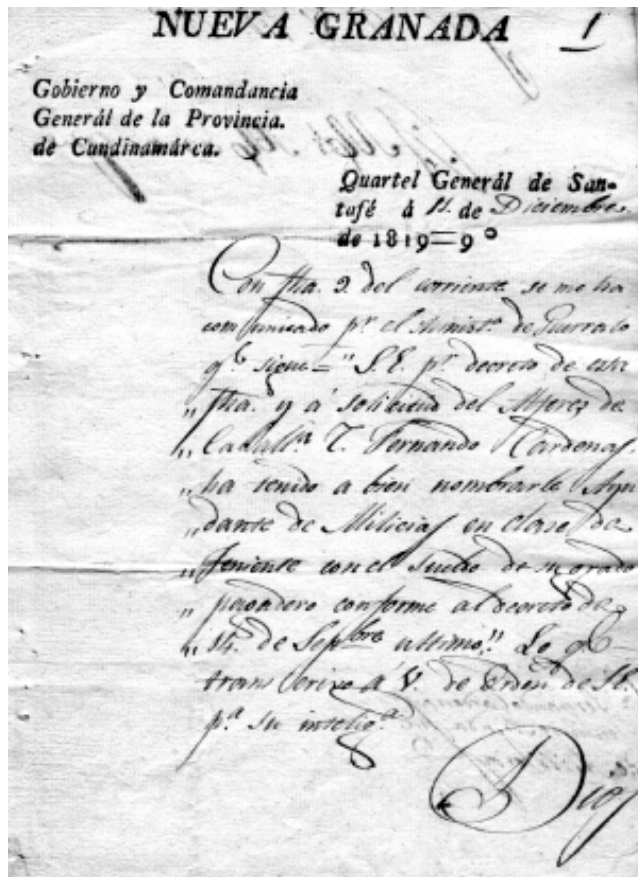 NUEVA GRANADA 1
Gobierno y Comandancia
Generál de la Provincia.
de Cundinamárca.
Quartel Generál de San-
tafé á 11. de Diciembre
de 1819=9º
Con fha. 9. del corriente se me ha
comunicado pr. el Minist.º de Guerra lo
qe. sigue = "S.E. pr. decreto de esta
" fha. y á solicitud del Alferez de
" Caball.ª C. Fernando Cardenas.
" ha tenido a bien nombrarle Ayu
" dante de Milicias en clase de
" Teniente con el sueldo de su grado
" pagadero conforme al decreto de
" 14. de Sepbre ultimo." Lo qe
transcrivo á V. de orden de S.E.
pª. su intelig.ª
Dios